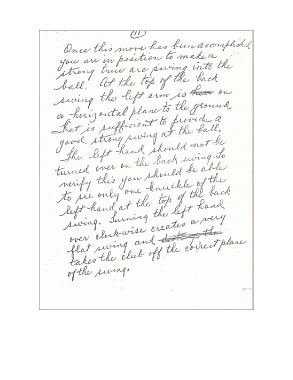 (11)
Once this move has been accomplished
you are in position to make a
strong true arc swing into the
ball. At the top of the back
swing the left arm is on
a horizontal plane to the ground
that is sufficient to provide a
good strong swing at the ball.
The left hand should not be
turned over on the back swing. To
verify this you should be able
to see only one knuckle of the
left hand at the top of the back
swing. Turning the left hand
over clockwise creates a very
flat swing and
takes the club off the correct plane
of the swing.